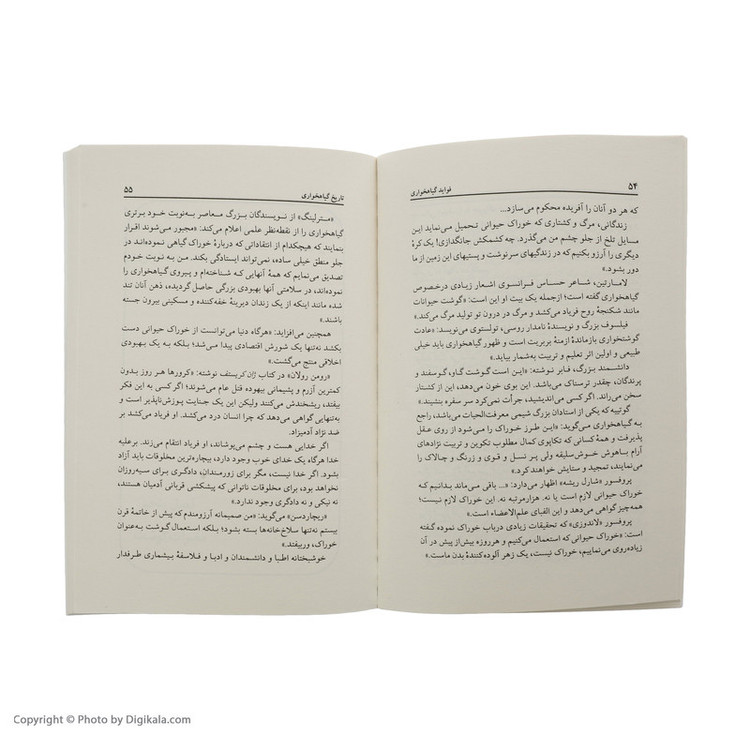 ۵۴
فواید گیاهخواری
که هر دو آنان را آفریده محکوم می‌سازد...
زندگانی، مرگ و کشتاری که خوراک حیوانی تحمیل می‌نماید این
مسایل تلخ از جلو چشم من می‌گذرد. چه کشمکش جانگدازی! یک کرهٔ
دیگری را آرزو بکنیم که در زندگیهای سرنوشت و پستیهای این زمین از ما
دور بشود.»
لامارتین، شاعر حساس فرانسوی اشعار زیادی درخصوص
گیاهخواری گفته است؛ ازجمله یک بیت او این است: «گوشت حیوانات
مانند شکنجهٔ روح فریاد می‌کشد و مرگ در درون تو تولید مرگ می‌کند.»
فیلسوف بزرگ و نویسندهٔ نامدار روسی، تولستوی می‌نویسد: «عادت
گوشتخواری بازماندهٔ ازمنهٔ بربریت است و ظهور گیاهخواری باید خیلی
طبیعی و اولین اثر تعلیم و تربیت به‌شمار بیاید.»
دانشمند بزرگ، فابر نوشته: «این است گوشت گاو، گوسفند و
پرندگان، چقدر ترسناک می‌باشد. این بوی خون می‌دهد، این از کشتار
سخن می‌راند. اگر کسی می‌اندیشید، جرأت نمی‌کرد سر سفره بنشیند.»
گوتیه که یکی از استادان بزرگ شیمی معرفت‌الحیات می‌باشد، راجع
به گیاهخواری می‌گوید: «این طرز خوراک را می‌شود از روی عقل
پذیرفت و همهٔ کسانی که تکاپوی کمال مطلوب تکوین و تربیت نژادهای
باهوش خوش‌سلیقه ولی پر نسل و قوی و زرنگ و چالاک را
می‌نمایند، تمجید و ستایش خواهند کرد.»
پروفسور «شارل ریشه» اظهار می‌دارد: «... باقی می‌ماند بدانیم که
خوراک حیوانی لازم است یا نه. هزارمرتبه نه. این خوراک لازم نیست؛
همه‌چیز گواهی می‌دهد و این الفبای علم‌الاعضاء است.»
پروفسور «لاندوزی» که تحقیقات زیادی درباب خوراک نموده گفته
است: «خوراک حیوانی که استعمال می‌کنیم و هرروزه بیش‌از پیش در آن
زیاده‌روی می‌نماییم، خوراک نیست، یک زهر آلوده‌کنندهٔ بدن ماست.»
تاریخ گیاهخواری
۵۵
«مترلینگ» از نویسندگان بزرگ معاصر به‌نوبت خود برتری
گیاهخواری را از نقطه‌نظر علمی اعلام می‌کند: «مجبور می‌شوند اقرار
بنمایند که هیچکدام از انتقاداتی که دربارهٔ خوراک گیاهی نموده‌اند در
جلو منطق خیلی ساده، نمی‌تواند ایستادگی بکند. من به نوبت خودم
تصدیق می‌نمایم که همهٔ آنهایی که شناخته‌ام و پیروی گیاهخواری را
نموده‌اند، در سلامتی آنها بهبودی بزرگی حاصل گردیده، ذهن آنان تند
شده مانند اینکه از یک زندان دیرینهٔ خفه‌کننده و مسکینی بیرون جسته
باشند.»
همچنین می‌افزاید: «هرگاه دنیا می‌توانست از خوراک حیوانی دست
بکشد نه‌تنها یک شورش اقتصادی پیدا می‌شد؛ بلکه یک بهبودی
اخلاقی منتج می‌گشت.»
«رومن رولان» در کتاب ژان کریستف نوشته: «کرورها هر روز بدون
کمترین آزرم و پشیمانی بیهوده قتل عام می‌شوند؛ اگر کسی به این فکر
بیفتد، ریشخندش می‌کنند ولیکن این یک جنایت پوزش‌ناپذیر است و
به‌تنهایی گواهی می‌دهد که چرا انسان درد می‌کشد. او فریاد می‌کشد بر
ضد نژاد آدمیزاد.
اگر خدایی هست و چشم می‌پوشاند، او فریاد انتقام می‌زند. برعلیه
خدا هرگاه یک خدای خوب وجود دارد، بیچاره‌ترین مخلوقات باید آزاد
بشود. اگر خدا نیست، مگر برای زورمندان، دادگری برای سیه‌روزان
نخواهد بود، برای مخلوقات ناتوانی که پیشکشی قربانی آدمیان هستند،
نه نیکی و نه دادگری وجود ندارد.»
«ریچاردسن» می‌گوید: «من صمیمانه آرزومندم که پیش از خاتمهٔ قرن
بیستم نه‌تنها سلاخ‌خانه‌ها بسته بشود؛ بلکه استعمال گوشت به‌عنوان
خوراک، وربیفتد.»
خوشبختانه اطبا و دانشمندان و ادبا و فلاسفهٔ بیشماری طرفدار
Copyright © Photo by Digikala.com